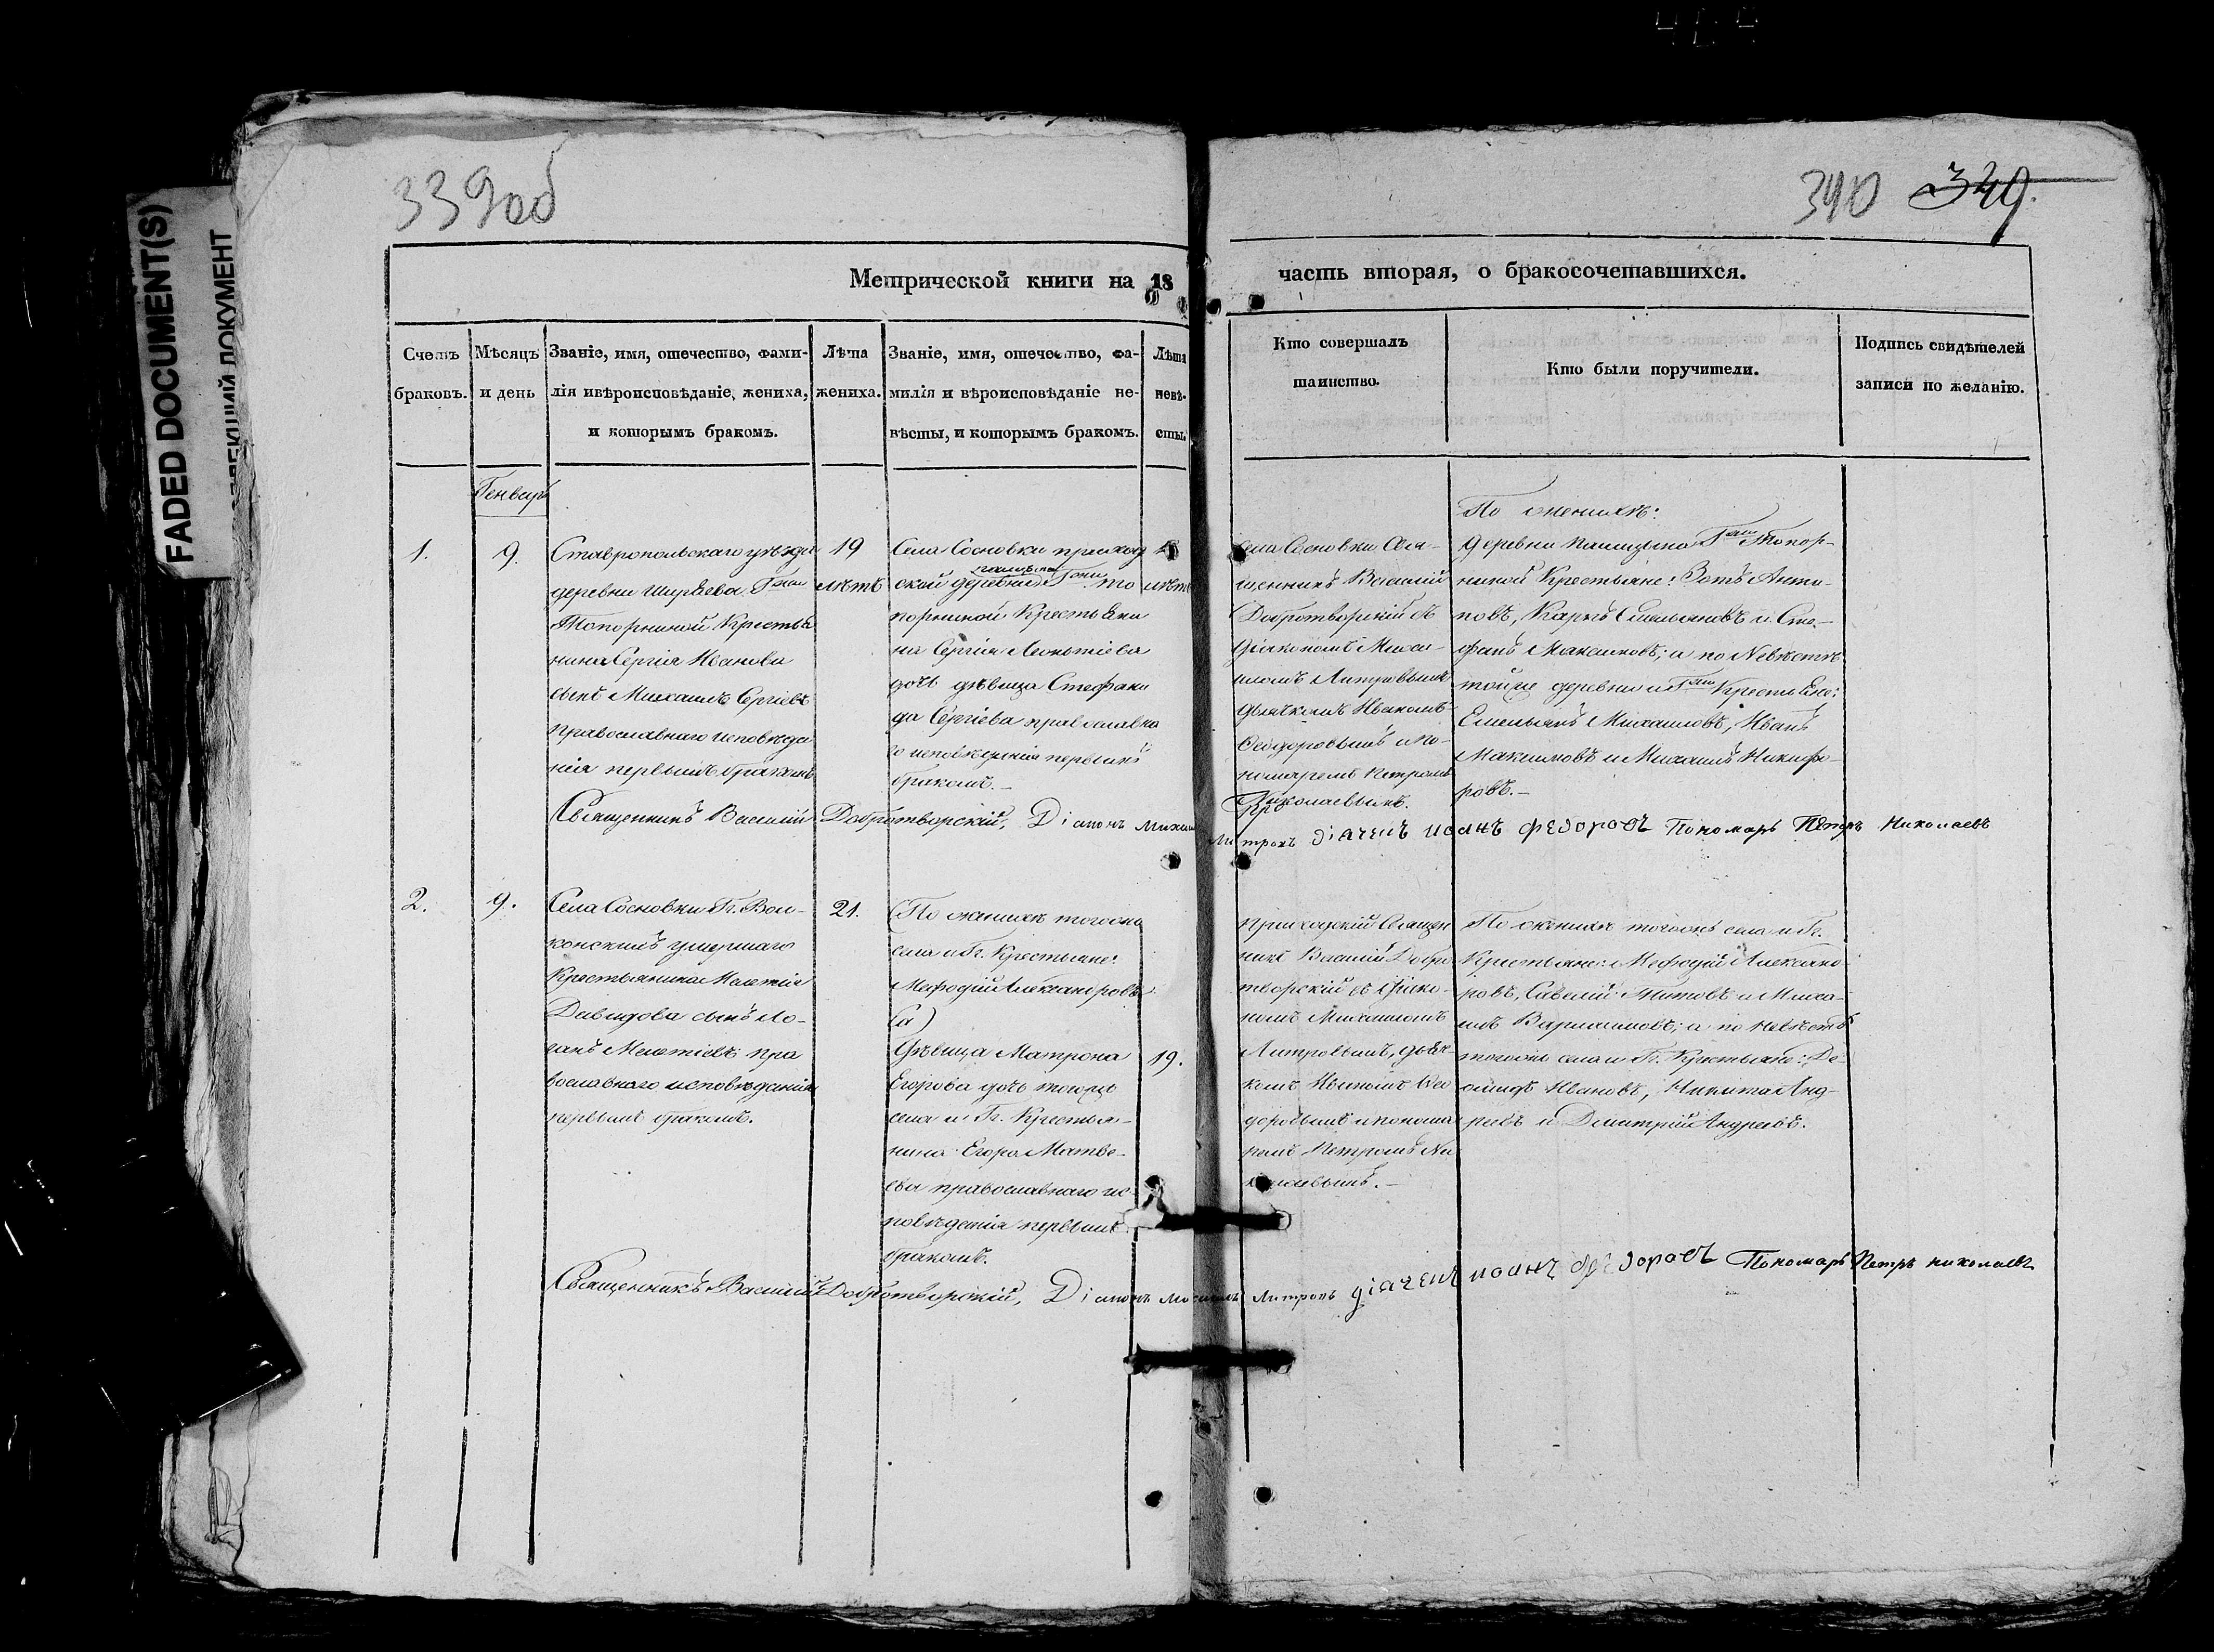 FADED DOCUMENT(S)
339об
340 349.
Метрической книги на 18
часть вторая, о бракосочетавшихся.
Счетъ
браковъ.
Мѣсяцъ
и день
Званіе, имя, отечество, фами-
лія ивѣроисповѣданіе, жениха,
и которымъ бракомъ.
Лѣта
жениха.
Званіе, имя, отечество, фа-
милія и вѣроисповѣданіе не-
вѣсты, и которымъ бракомъ.
Лѣта
невѣ-
сты.
Кто совершалъ
таинство.
Кто были поручители.
Подпись свидѣтелей
записи по желанію.
Генварь
1.
9.
Ставропольскаго уѣзда
деревни Ширяева Гжи
Топорниной Крестья
нина Сергія Иванова
сынъ Михаилъ Сергіевъ
православнаго исповѣда
нія первымъ бракомъ
19
лѣтъ
Села Сосновки приход
ской деревни Гжи То
порниной Крестьяни
на Сергія Леонтіева
дочь дѣвица Стефани
да Сергіева православна
го исповѣданія первымъ
бракомъ.
лѣтъ
Села Сосновки Свя-
щенникъ Василій
Добротворскій съ
Діакономъ Михаи-
ломъ Митровымъ
дьячкомъ Иваномъ
Феодоровымъ и по-
номаремъ Петромъ
Николаевымъ.
По женихѣ:
Деревни Гжи Топор-
ниной Крестьяне: Зотъ Анти-
повъ, Карпъ Емельяновъ и Сте-
фанъ Максимовъ; а по Невѣстѣ
тойже деревни и Гжи Крестьяне:
Емельянъ Михаиловъ, Иванъ
Максимовъ и Михаилъ Никифо-
ровъ.
Священникъ Василій Добротворскій, Діаконъ Михаилъ Митровъ діячекъ иоанъ федоровъ Пономарь Петръ Николаевъ
2.
9.
Села Сосновки Гг. Вол-
конскихъ умершаго
Крестьянина Мелетія
Давыдова сынъ Ло-
гинъ Мелетіевъ пра
вославнаго исповѣданія
первымъ бракомъ.
21.
(По женихѣ тогожъ
села и Гг. Крестьяне:
Мефодій Александровъ
а)
Дѣвица Матрона
Егорова дочь тогоже
села и Гг. Крестья-
нина Егора Матве-
ева православнаго ис-
повѣданія первымъ
бракомъ.
19.
Приходскій Священ
никъ Василій Добро
творскій съ Діако-
номъ Михаиломъ
Митровымъ, дьяч
комъ Иваномъ Фео
доровымъ и понома
ремъ Петромъ Ни
колаевымъ.
По женихѣ тогожъ села и Гг.
Крестьяне: Мефодій Александ-
ровъ, Савелій Титовъ и Миха-
илъ Варламовъ; а по невѣстѣ
тогожъ села и Гг. Крестьяне: Де-
мидъ Ивановъ, Никита Анд-
реевъ и Димитрій Андреевъ.
Священникъ Василій Добротворскій, Діаконъ Михаилъ Митровъ діячекъ иоанъ федоровъ Пономарь Петръ николаевъ